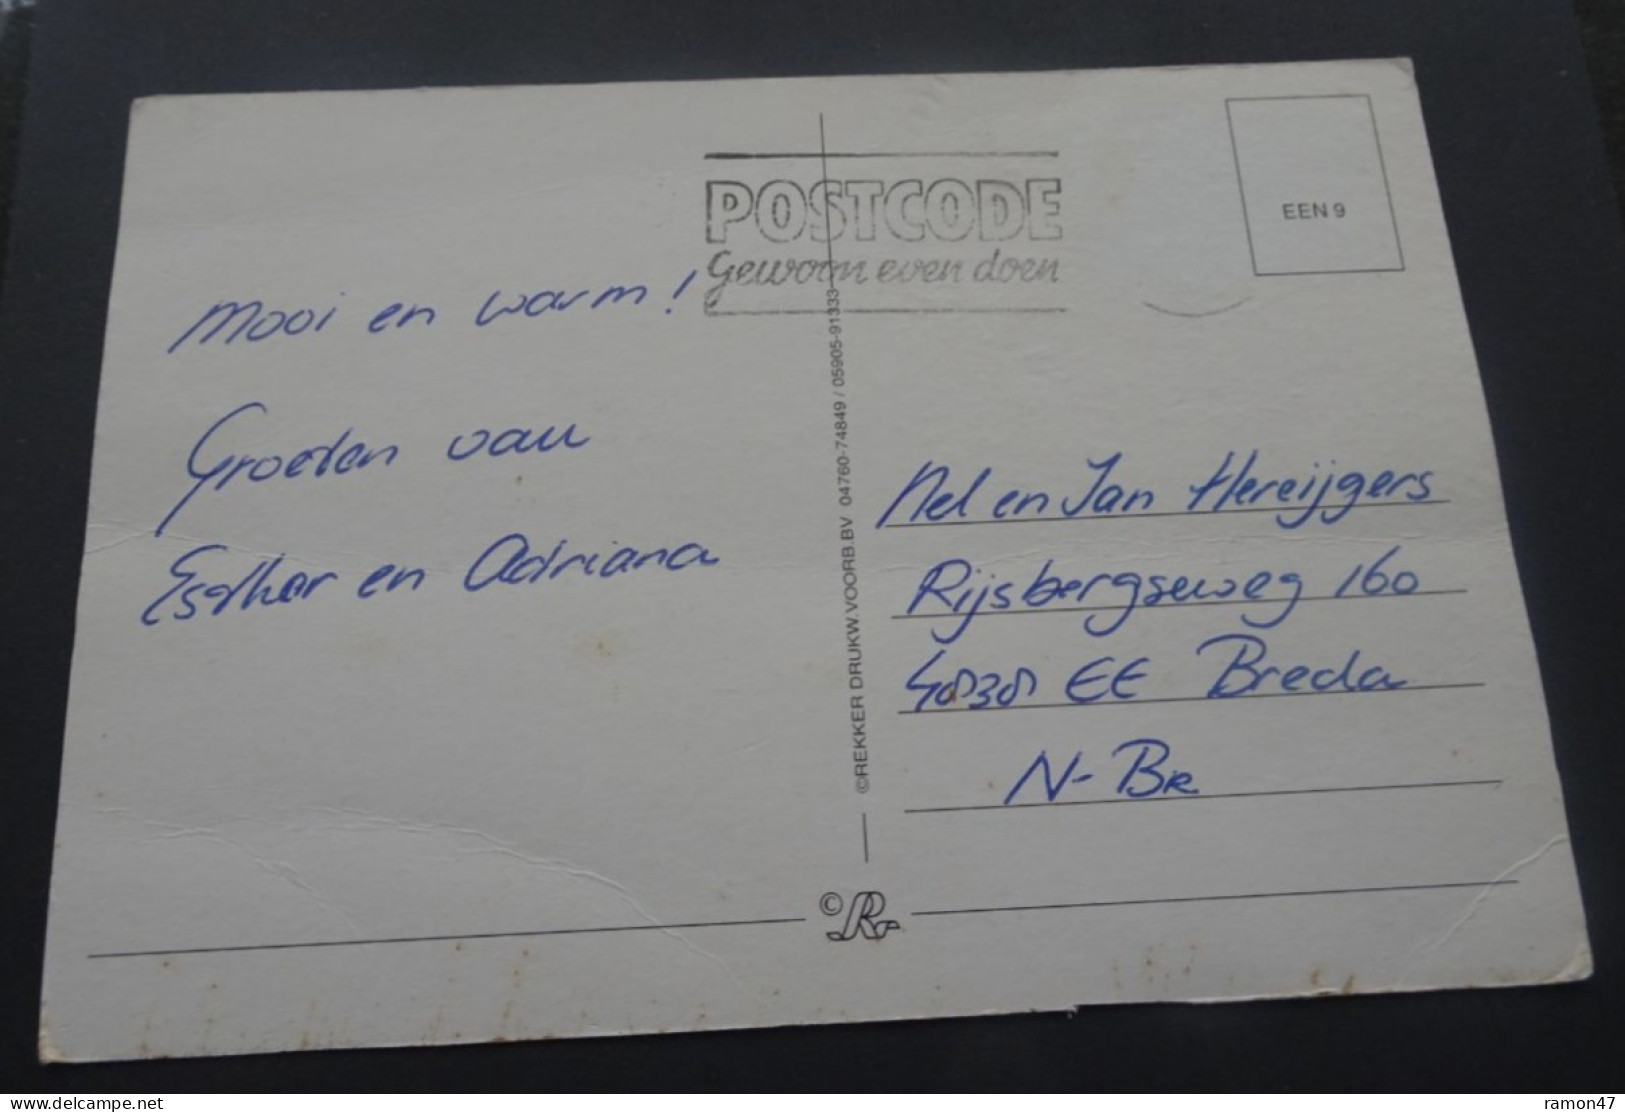 POSTCODE
Gewoon even doen
EEN 9
Mooi en warm!
Groeten van
Esther en Adriana
©REKKER DRUKW.VOORB.BV 04760-74849 / 05905-91333
Nel en Jan Hereijgers
Rijsbergseweg 160
4838 EE Breda
N-Br
©R
delcampe.net
ramon47